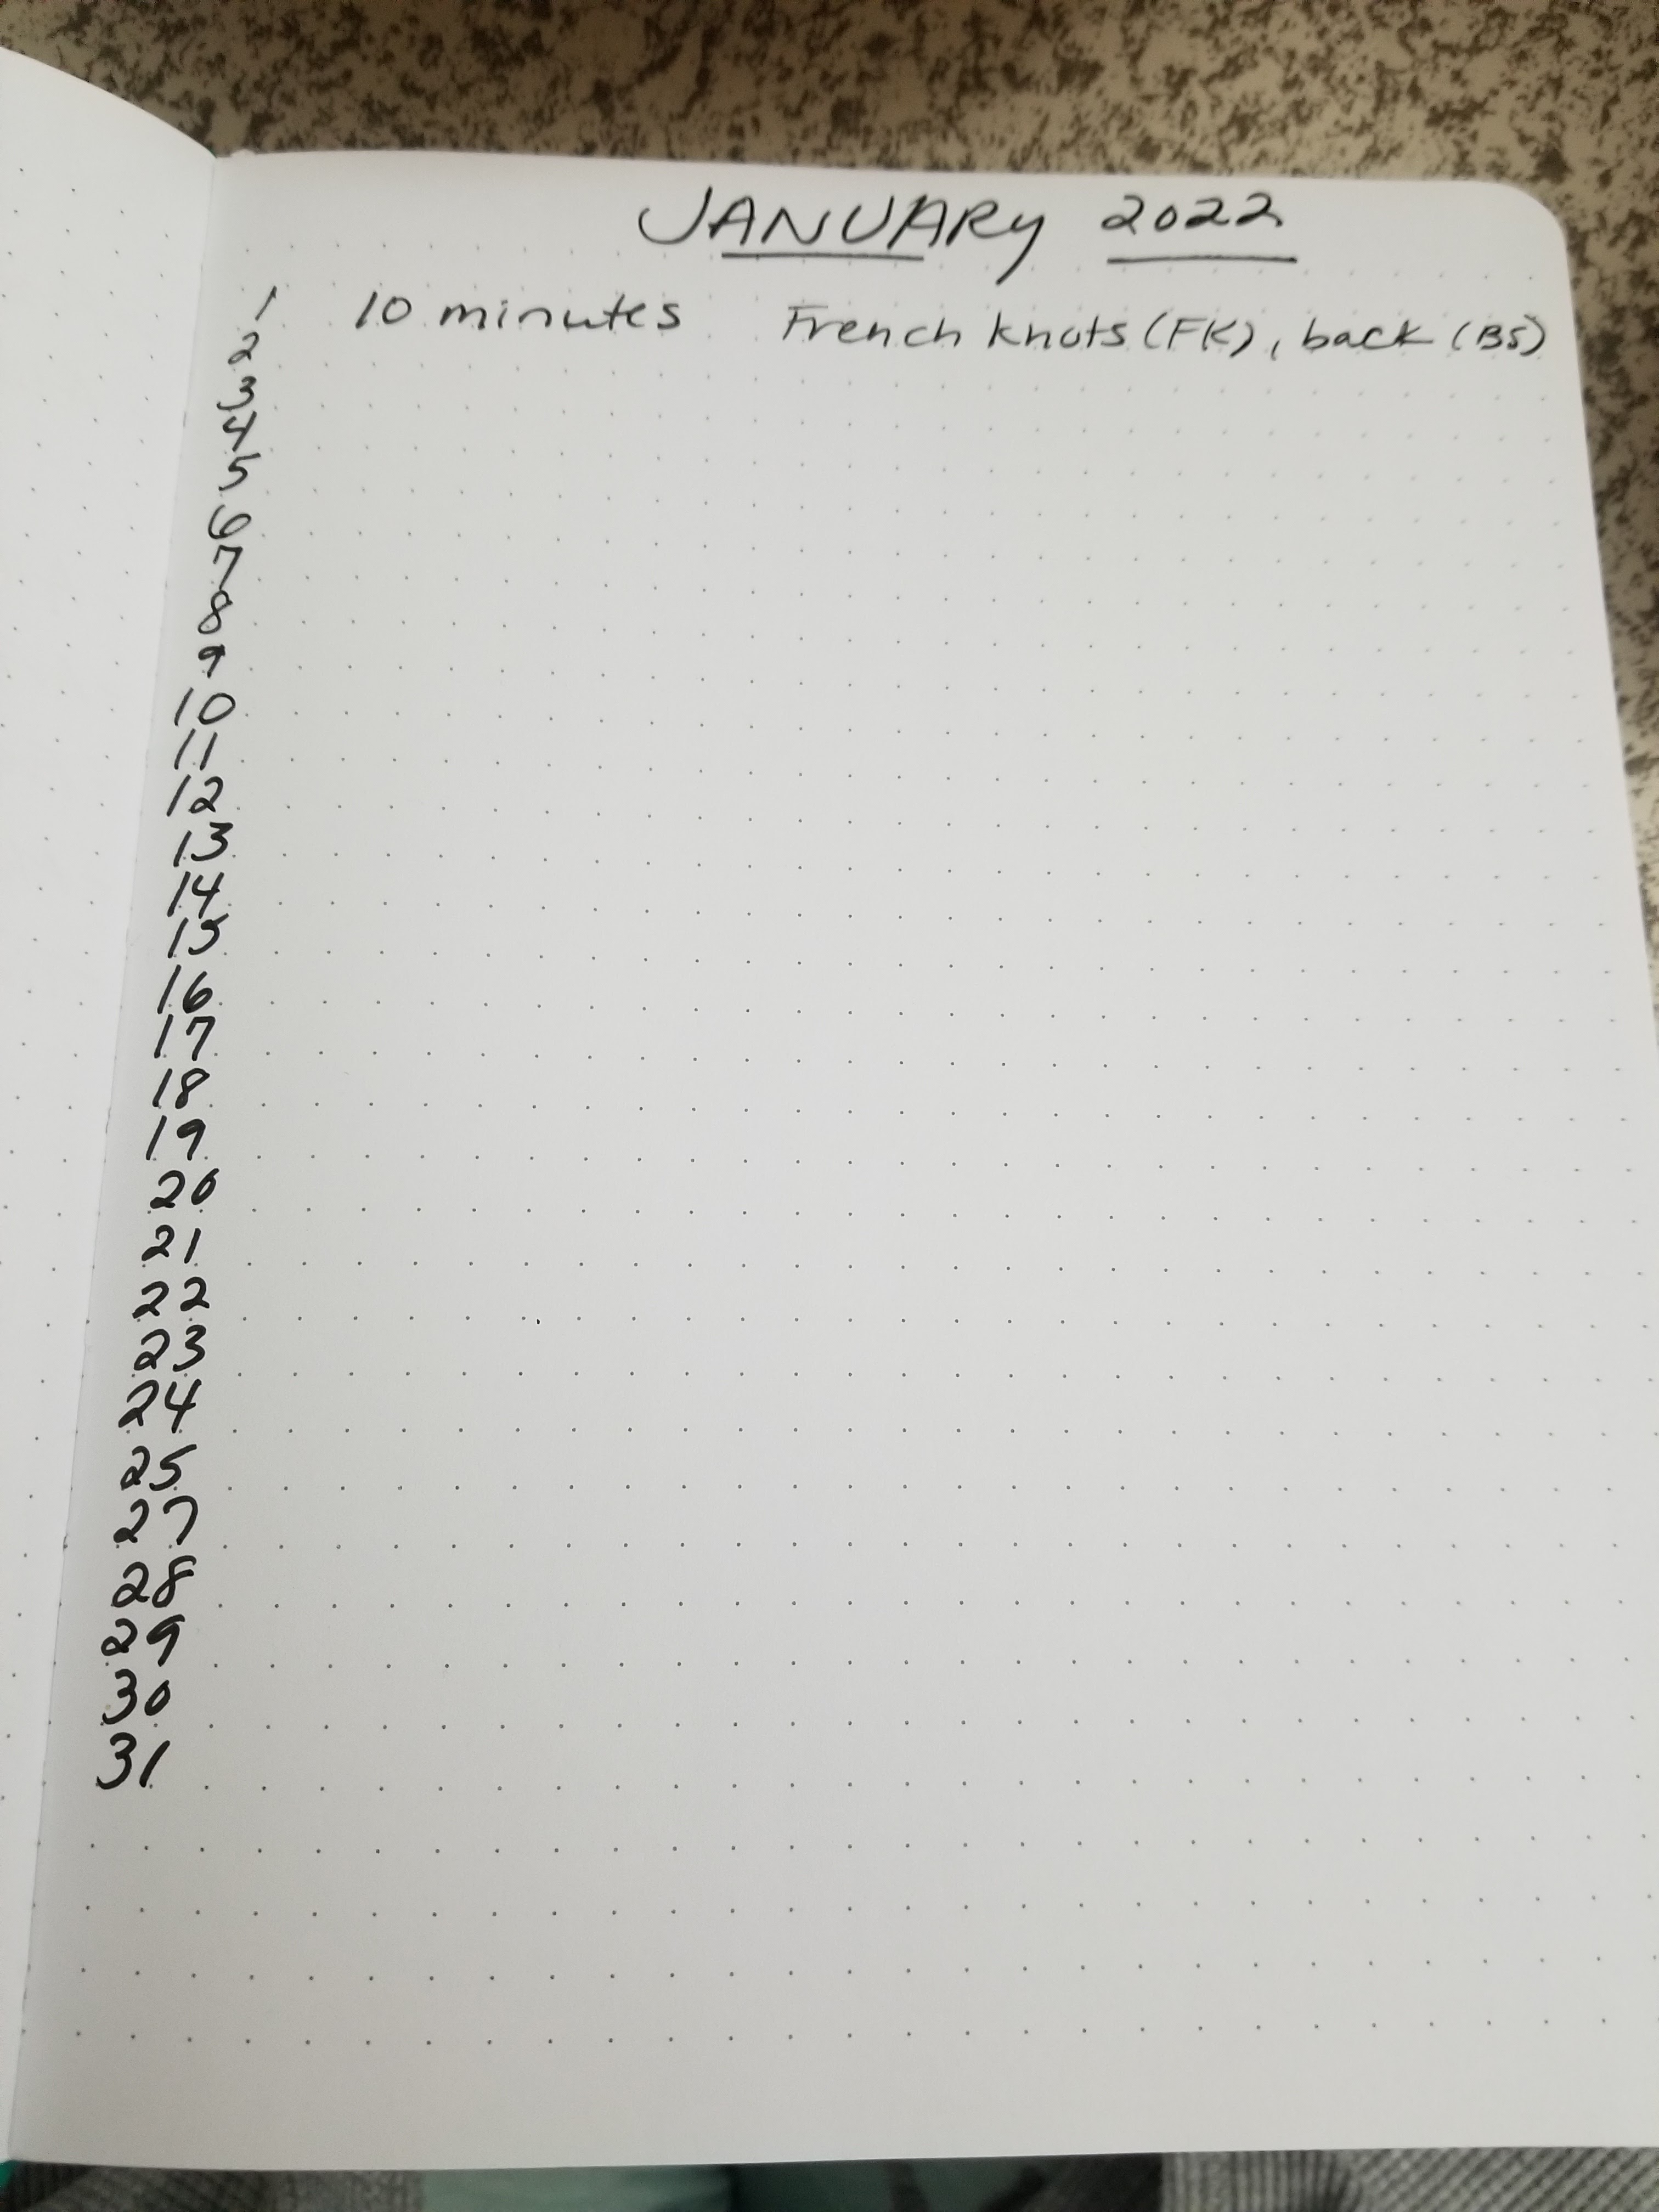 JANUARY 2022
1 10 minutes French knots (FK), back (BS)
2
3
4
5
6
7
8
9
10
11
12
13
14
15
16
17
18
19
20
21
22
23
24
25
27
28
29
30
31